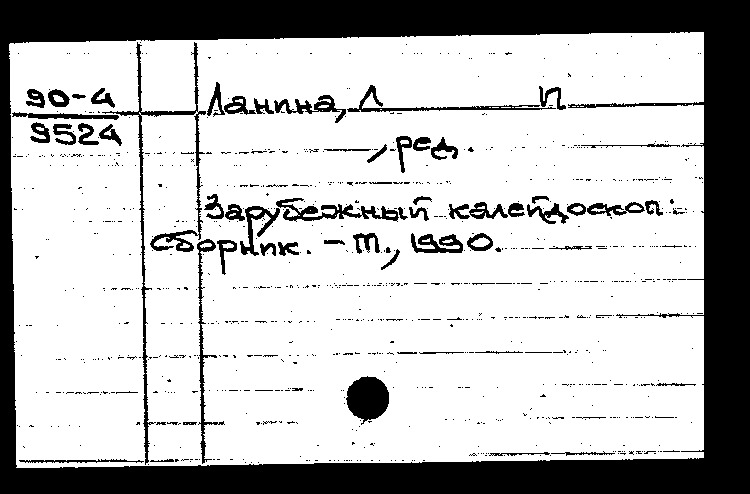 90-4
9524
Ланина, Л П
, ред.
Зарубежный калейдоскоп:
Сборник. – М., 1990.